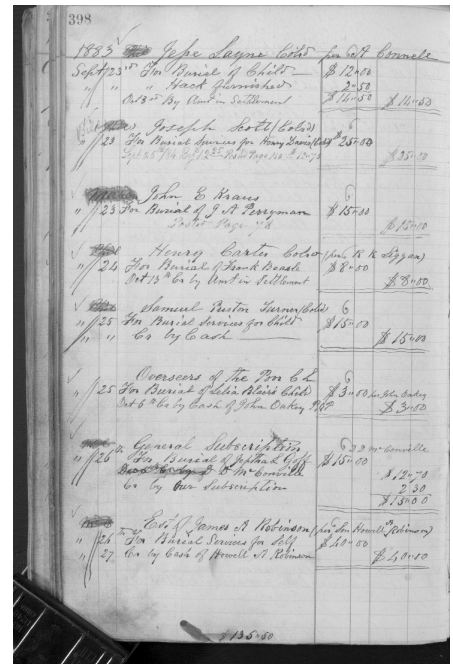 398
1883 Jepe Layne Cold per A Connell
Sept 23rd For Burial of Child $12.00
" " " Hack furnished 2.50
Oct 3rd By Amt in Settlement $14.50 $14.50
Joseph Scott (Cold) 6
" 23 For Burial Services for Henry Davis (Cold) $25.00
$25.00
John E Kraus 6
" 23 For Burial of J A Perryman $15.00
Page $15.00
Henry Carter Cold (per K K Liggan)
" 24 For Burial of Frank Beasle $8.00
Oct 13th Cr by Amt in Settlement $8.00
Samuel Preston Turner (Cold) 6
" 25 For Burial Services for Child $15.00
" " Cr by Cash $15.00
Overseers of the Poor C L 6
" 25 For Burial of Celia Blairs Child $3.00 per John Oakey
Oct 5th Cr by Cash of John Oakey $3.00
General Subscription 6 McConville
" 26 For Burial of Jeptha L Goff $15.00
McConville $12.70
Cr by Our Subscription 2.30
$15.00
Est of James A Robinson (per Howell Robinson)
" 26 For Burial Services for Self $40.00
" 27 Cr by Cash of Howell A Robinson $40.00
$135.50